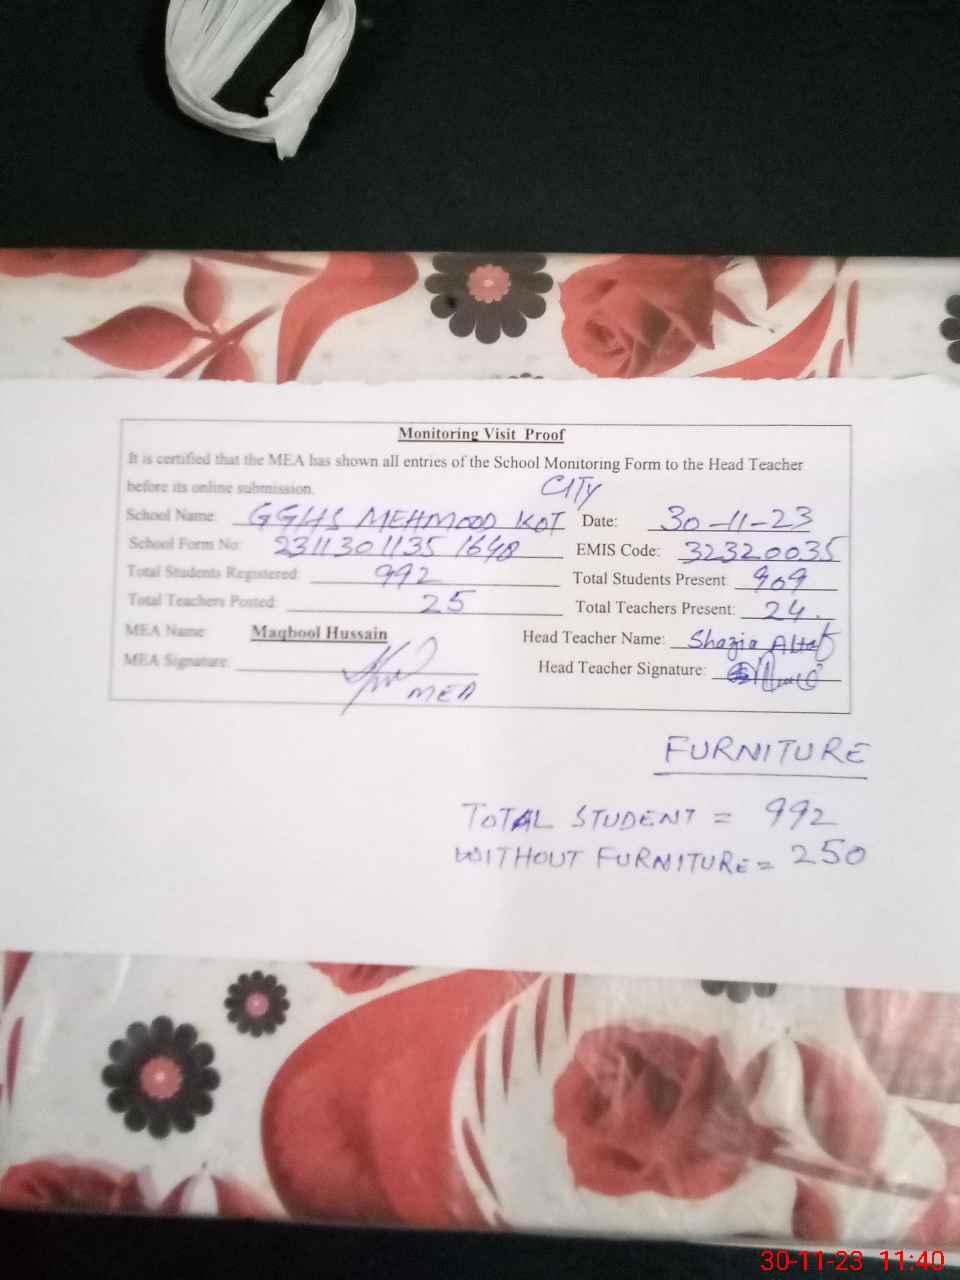 Monitoring Visit Proof
It is certified that the MEA has shown all entries of the School Monitoring Form to the Head Teacher
before its online submission.
CITY
School Name: GGHS MEHMOOD KOT Date: 30-11-23
School Form No: 2311301135 1648 EMIS Code: 32320035
Total Students Registered: 992 Total Students Present: 909
Total Teachers Posted: 25 Total Teachers Present: 24.
MEA Name: Maqbool Hussain Head Teacher Name: Shazia Altaf
MEA Signature: Head Teacher Signature:
MEA
FURNITURE
TOTAL STUDENT = 992
WITHOUT FURNITURE = 250
30-11-23 11:40